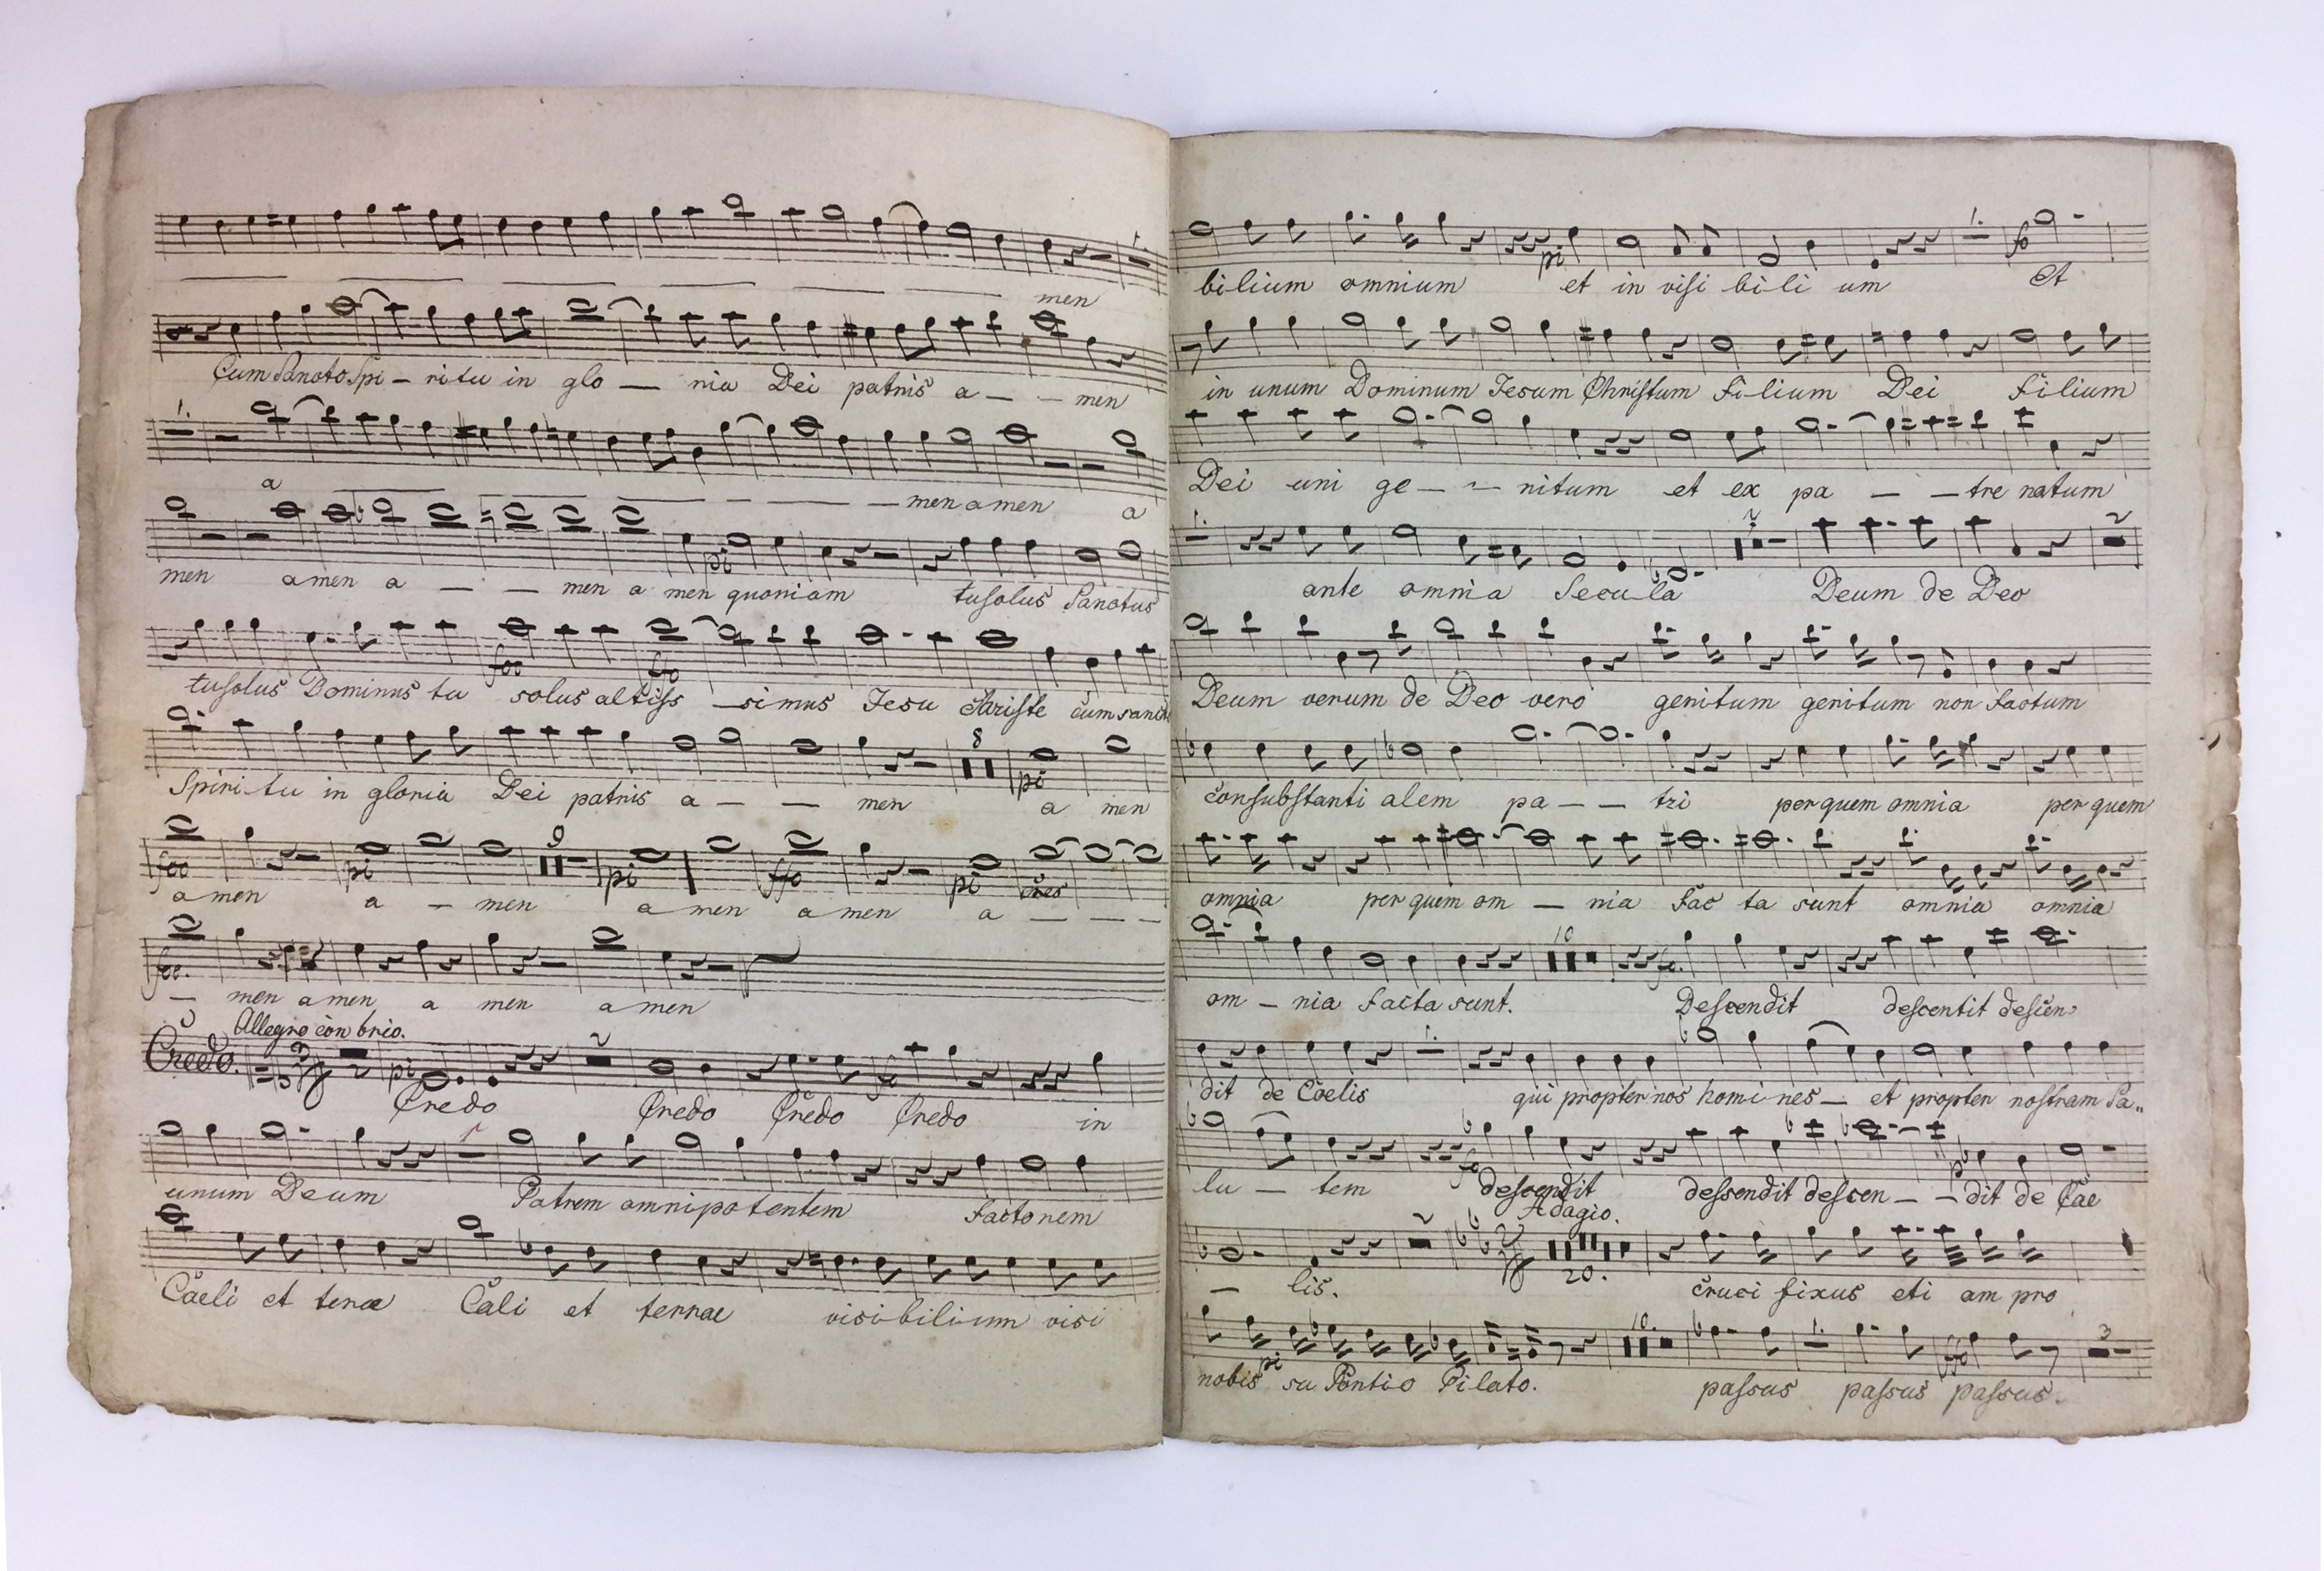 men
Cum Sancto Spi – ritu in glo — ria Dei patris a — — men
a — — — — men amen a
men amen a — — men a men quoniam tu solus Sanctus
pi
tu solus Dominus tu solus altiss – simus Jesu Christe cum sancto
Spiri-tu in gloria Dei patris a — — men a men
8
pi
a men a — men a men a men a — — —
9
pi pi ffo pi cres
— men amen a men a men
Allegro con brio.
Credo.
2 pi 2
Credo Credo Credo Credo in
unum Deum Patrem omnipotentem factorem
Caeli et terrae Cali et terrae visibilium visi
bilium omnium et in visi bili um Et
pi 1. fo
in unum Dominum Jesum Christum Filium Dei Filium
Dei uni ge — — nitum et ex pa — — tre natum
1. 2 2
ante omnia Secu-la Deum de Deo
Deum verum de Deo vero genitum genitum non factum
consubstanti alem pa — — tri per quem omnia per quem
omnia per quem om — nia fac ta sunt omnia omnia
10
om — nia facta sunt. Descendit descentit descen
1.
dit de Coelis qui propter nos homi nes — et propter nostram Sa..
lu — tem descendit dessendit descen — — dit de Cae
Adagio.
2 20.
— lis. cruci fixus eti am pro
10. 1. ffo 3
nobis su Pontio Pilato. passus passus passus.
pi